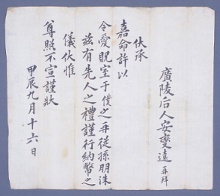 廣陵后人安燮遠再拜
伏承
嘉命許以
令愛貺室于僕之再從孫明洙
玆有先人之禮謹行納幣之
儀伏惟
尊照不宣謹狀
甲辰九月十六日